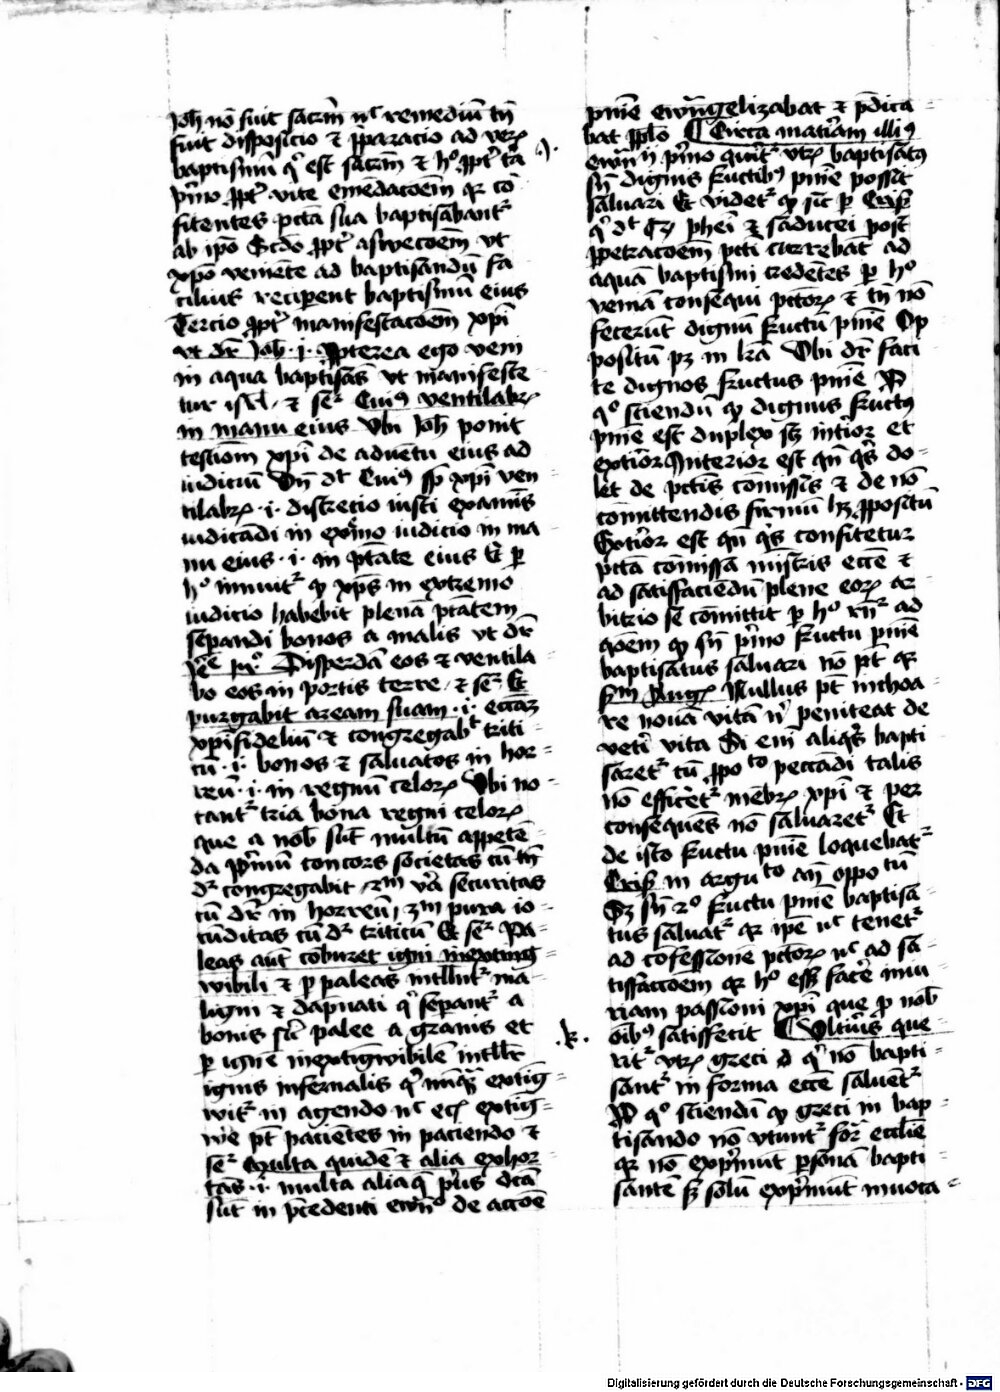 Joh̄ nō fuit sacrm̄ nᶜ remediū tn̄
fuit disposicio ⁊ p̄paracio ad verꝫ
baptismū qͥ est sacrm̄ ⁊ hͦ ꝓptͬ tͥa
pͥmo ꝓptͬ vite emēdacōem qꝛ cō
fitentes pctā sua baptisabantᷣ
ab ipo Scd̄o ꝓptͬ assuecōem vt
xp̄o veniēte ad baptisandū fa
cilius reciperent baptismū eius
Tercio ꝓptͬ manifestacōem xp̄i
vt dr̄ Joh̄ · j · Ꝓpterea ego veni
in aqua baptisās vt manifeste
tur isrl̄ / ⁊ seᷣ Cuiꝰ ventilabꝝ
in manu eius Vbi Joh̄ ponit
testiom̄ xp̄i de aduētu eius ad
iudiciū Vn̄ dᵗ Cuiꝰ sꝫ xp̄i ven
tilabꝝ · i · discrecio iusti examīs
iudicādi in extͣmo iudicio in ma
nu eius · i · in ptāte eius Et ꝑ
hͦ innuitᷣ ꝙ xp̄s in extremo
iudicio habebit plenā ptātem
sepandi bonos a malis vt dr̄
Disperdā eos ⁊ ventila
bo eos in portis terre / ⁊ seᷣ Et
purgabit aream suam · i · eccaꝫ
xp̄ifideliū ⁊ congregabᵗ triti
cū · i · bonos ⁊ saluatos in hor
reū · i · in regnū celoꝝ Vbi no
tantᷣ tria bona regni celoꝝ
que a nob̄ sūt multū appetē
da pͥmū concors societas cū tn̄
dᷣ congregabit / 2m̄ vͤa securitas
cū dr̄ in horreū / 3m̄ pura io
cūditas cū dᷣ triticū Et seᷣ Pa
leas aūt cōburet igni inexting
wibili ⁊ ꝑ paleas intllntᷣ ma
ligni ⁊ dāpnati qͥ sepantᷣ a
bonis sicᷣ palee a granis et
ꝑ ignē inextigwibilē intllr̄
ignis infernalis qͥ nūqͣ extig
witᷣ in agendo nᶜ eciꝫ extig
we pt̄ pacientes in paciendo ⁊
seᷣ Multa quidē ⁊ alia exhor
tās · i · multa alia qͣ pͥus dcā
sūt in p̄cedenti ewnͦ de accōe
pnīe ewāngelizabat ⁊ p̄dica
bat pp̄lo ¶ Circa matīam illiꝰ
ewn̄ ij pͥmo queritᷣ vtꝝ baptisatꝰ
sn̄ dignis fructibꝰ pnīe possit
saluari Et videtᷣ ꝙ sic ꝑ Cris
qͥ dᵗ Qꝫ phei ⁊ saducei post
ꝑpetracōem pcti currebāt ad
aquā baptismi credētes ꝑ hͦ
veniā consequi pctoꝝ ⁊ tn̄ nō
fecerūt dignū fructū pnīe Op
positū pꝫ in lrā Vbi dr̄ faci
te dignos fructus pnīe
qͦ sciendū ꝙ dignus fructꝰ
pnīe est duplex sꝫ intͥor et
extͥor Interior est qn̄ qͥs do
let de pctīs cōmissis ⁊ de nō
cōmittendis firmū hꝫ ꝓpositū
Extͥor est qn̄ qͥs confitetur
pctā cōmissa mīstris ecce ⁊
ad satisfaciēdū plene eoꝝ ar
bitrio se cōmittit ꝑ hͦ rn̄ᷣ ad
qōem ꝙ sn̄ pͥmo fructu pnīe
baptisatus saluari nō pt̄ qꝛ
sm̄ Augꝝ Nullus pt̄ inchoa
re nouā vitā nͥ peniteat de
vetͥ vita Si em̄ aliqͥs bapti
saretᷣ cū ꝓpoᵗͦ peccādi talis
nō efficetᷣ mēbꝝ xp̄i ⁊ per
consequēs nō saluaretᷣ Et
de isto fructu pnīe loquebatᷣ
Cris in arguᵗͦ an̄ oppoᵗū
Sꝫ sn̄ 2ͦ fructu pnīe baptisa
tus saluatᷣ qꝛ ipe nᶜ tenetᷣ
ad cōfessionē pctoꝝ nᶜ ad sa
tisfaccōem qꝛ hͦ esset facē iniu
riam passioni xp̄i que ꝓ nob̄
oībꝰ satisfecit ¶ Vltiͥus que
ritᷣ vtꝝ greci qͥ nō bapti
santᷣ in forma ecce saluētᷣ
qͦ sciendū ꝙ greci in bap
tisando nō vtuntᷣ forͣ ecclīe
qꝛ nō expͥmūt ꝑsonā bapti
santē sꝫ solū expͥmūt inuoca
.k.
Digitalisierung gefördert durch die Deutsche Forschungsgemeinschaft - DFG